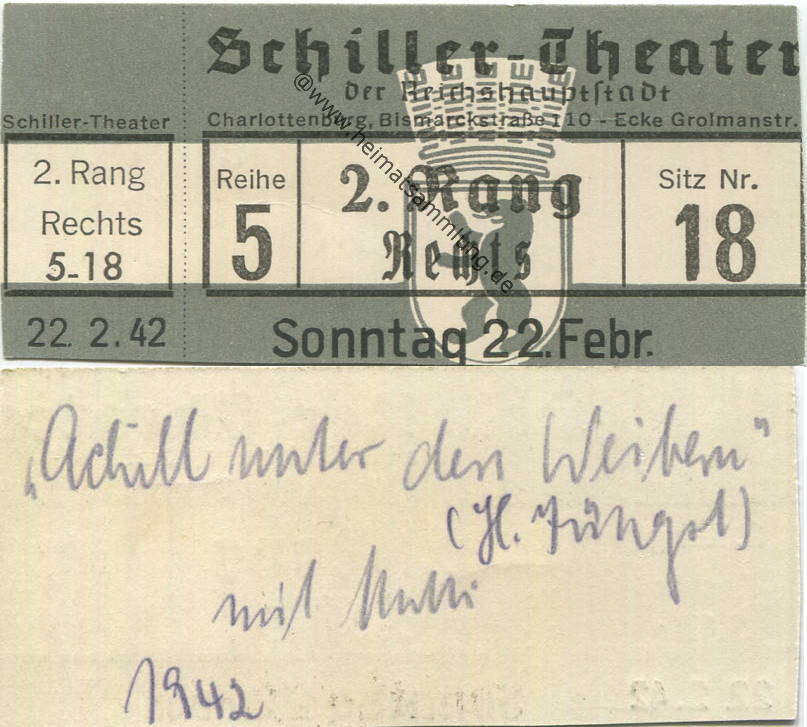 Schiller-Theater
2. Rang
Rechts
5-18
22. 2.42
Schiller-Theater
der Reichshauptstadt
Charlottenburg, Bismarckstraße 110 - Ecke Grolmanstr.
Reihe
5
2. Rang
Rechts
Sitz Nr.
18
Sonntag 22. Febr.
@www.heimatsammlung.de
„Achill unter den Weibern"
(H. Jüngst)
mit Mutti
1942
22.2.42